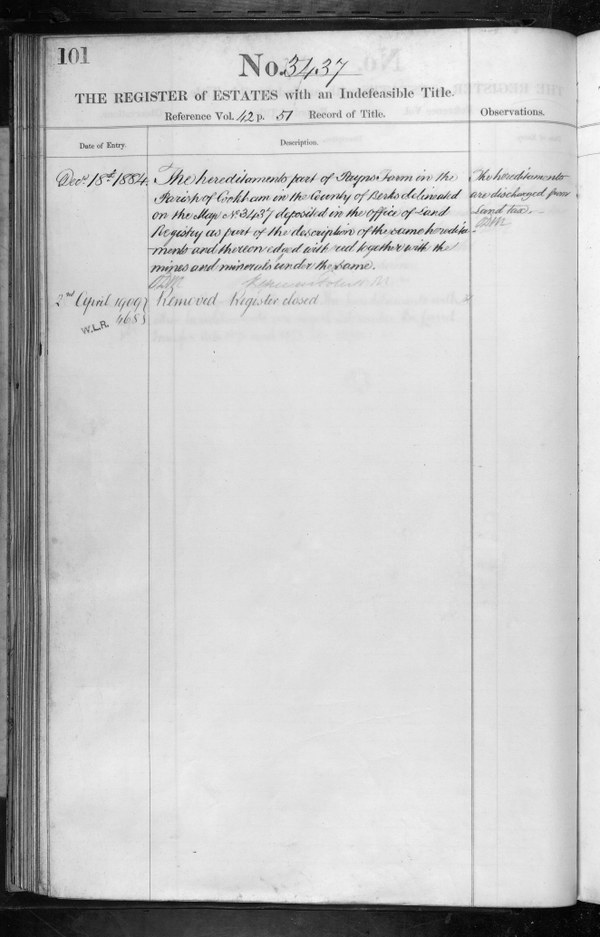 101
No. 3437
THE REGISTER of ESTATES with an Indefeasible Title.
Reference Vol. 42 p. 51 Record of Title.
Observations.
Date of Entry.
Description.
Decr 18th 1884.
The hereditaments part of Payns Farm in the
Parish of Cookham in the County of Berks delineated
on the Map No. 3437 deposited in the office of Land
Registry as part of the description of the same heredita-
ments and thereon edged with red together with the
mines and minerals under the same.
The hereditaments
are discharged from
Land tax.
2nd April 1909
Removed Register closed
W.L.R.